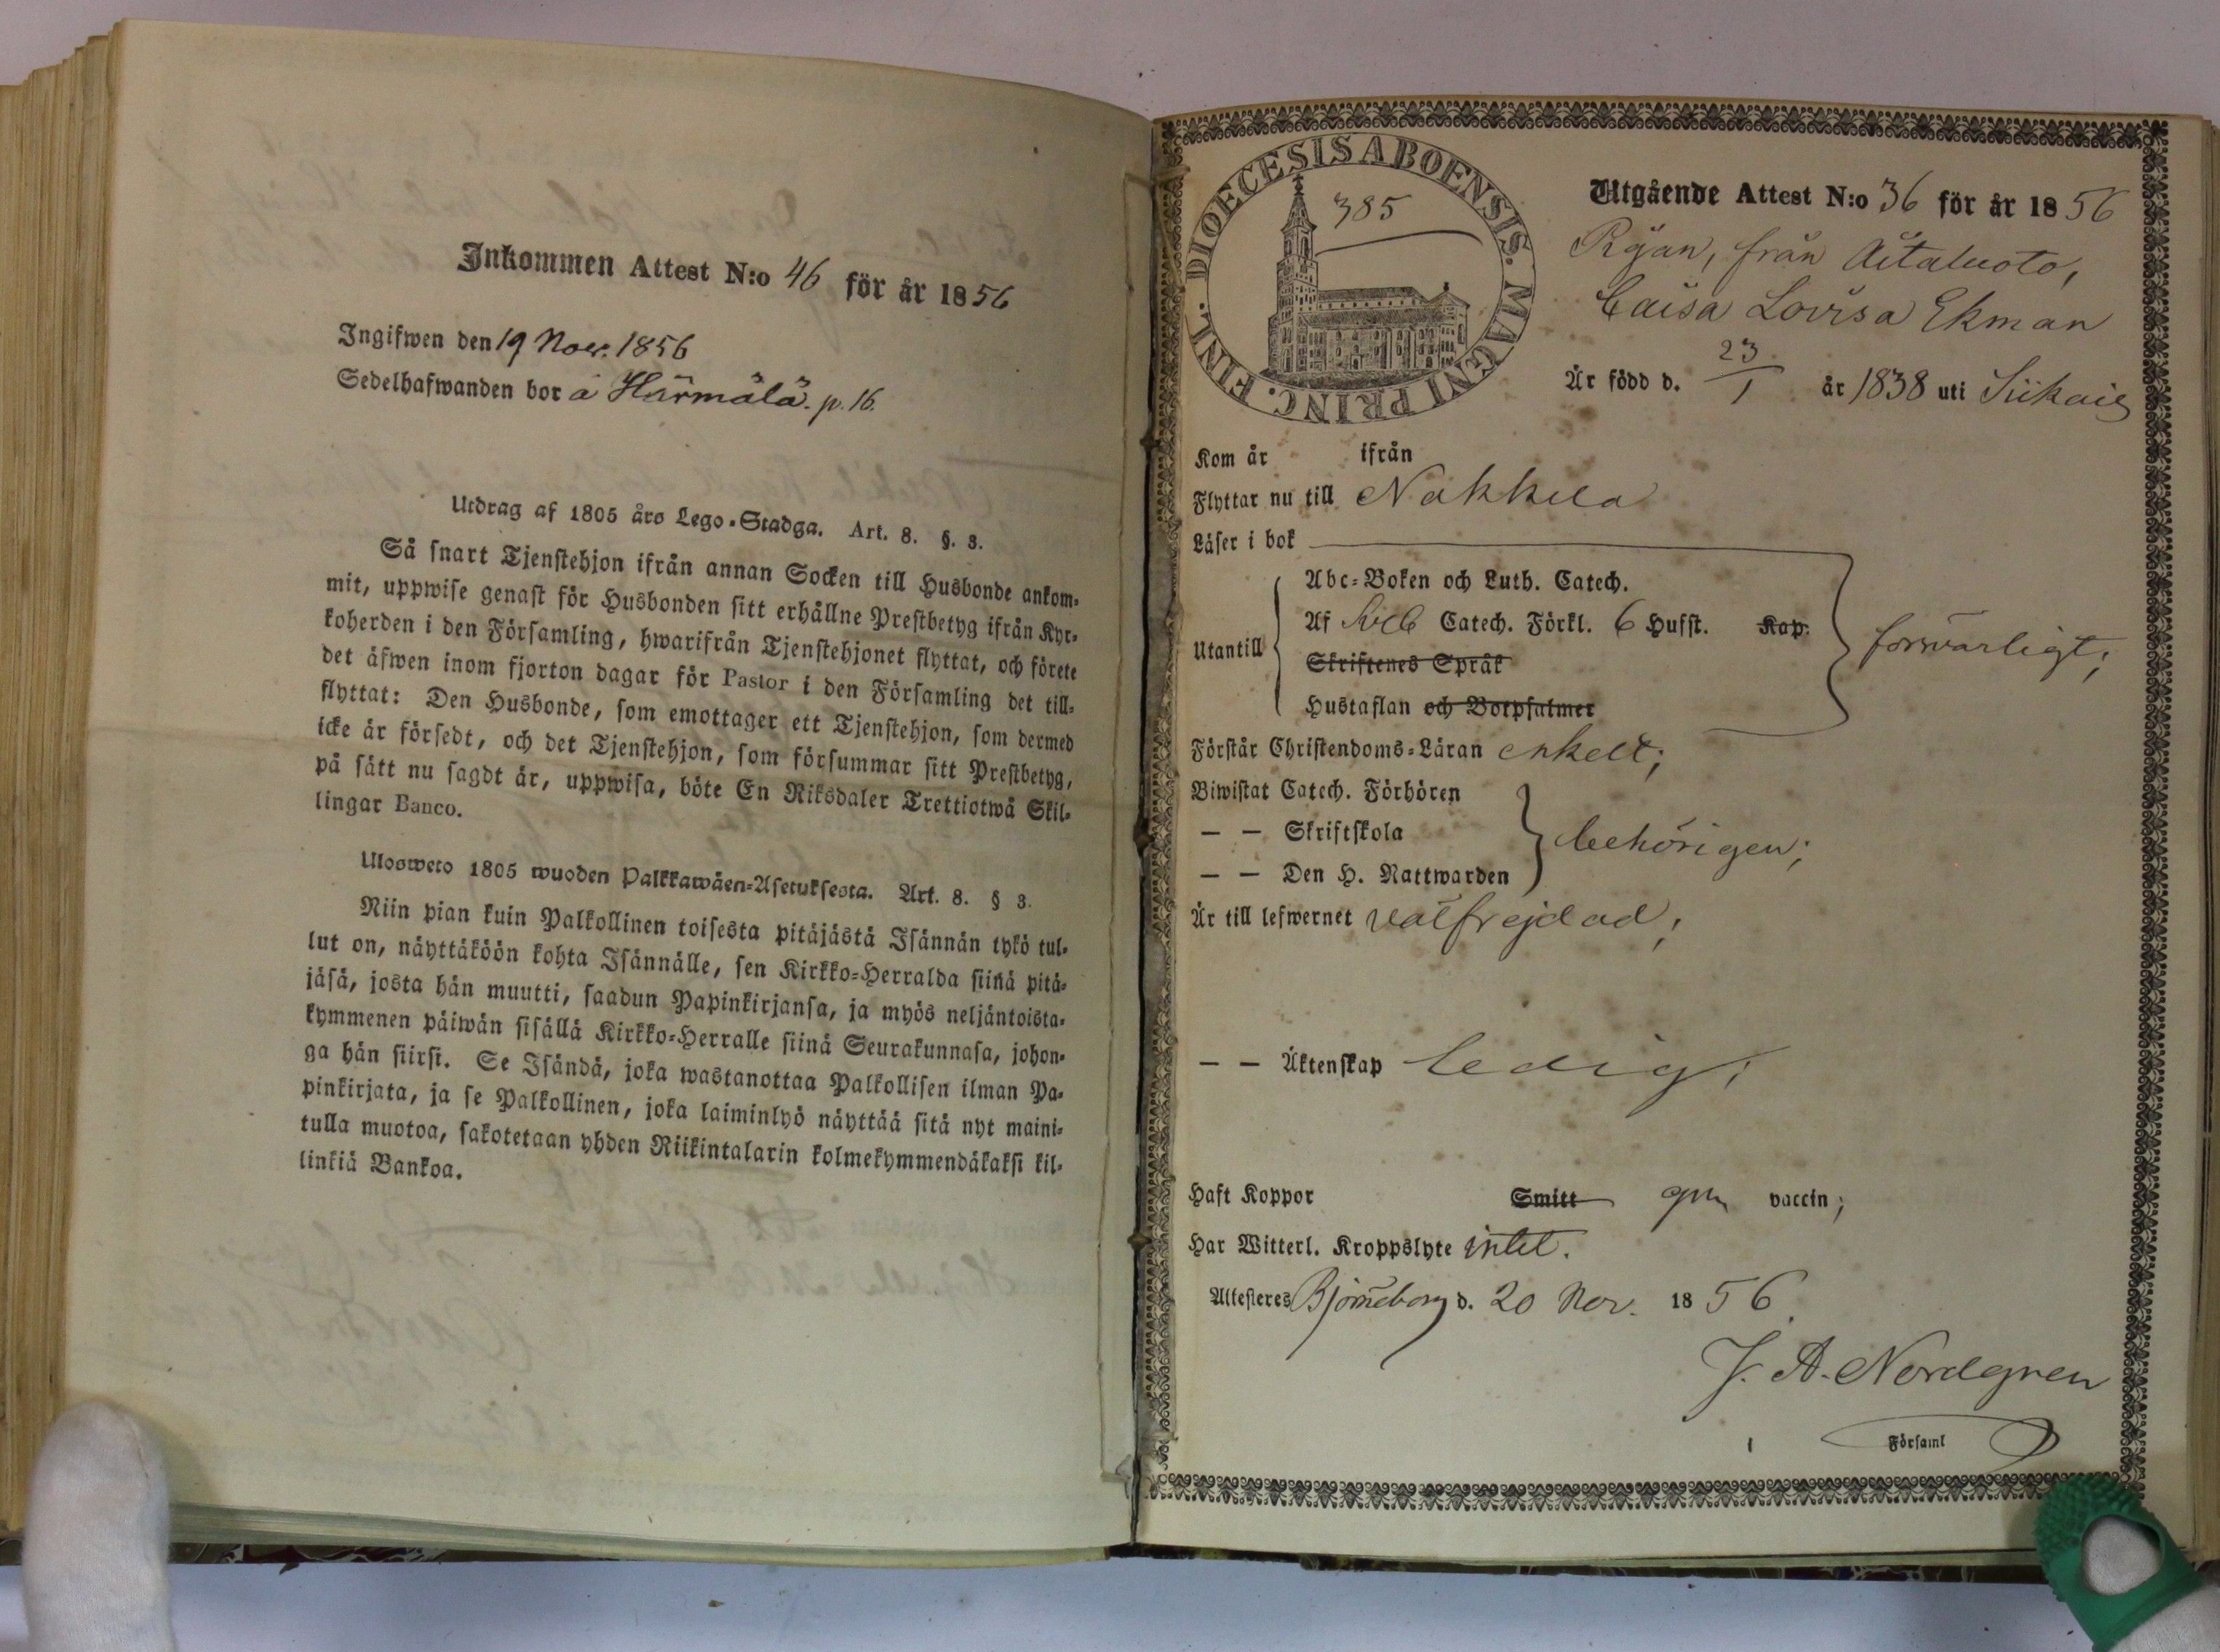 Inkommen Attest N:o 46 för år 1856
Ingifwen den 19 Nov. 1856
Sedelhafwanden bor å Härmälä. p. 16.
Utdrag af 1805 års Lego-Stadga. Art. 8. §. 3.
Så snart Tjenstehjon ifrån annan Socken till Husbonde ankom-
mit, uppwise genast för Husbonden sitt erhållne Prestbetyg ifrån Kyr-
koherden i den Församling, hwarifrån Tjenstehjonet flyttat, och förete
det äfwen inom fjorton dagar för Pastor i den Församling det till-
flyttat: Den Husbonde, som emottager ett Tjenstehjon, som dermed
icke är försedt, och det Tjenstehjon, som försummar sitt Prestbetyg,
på sätt nu sagdt är, uppwisa, böte En Riksdaler Trettiotwå Skil-
lingar Banco.
Ulosweto 1805 wuoden Palkkawäen-Asetuksesta. Art. 8. § 3.
Niin pian kuin Palkollinen toisesta pitäjästä Isännän tykö tul-
lut on, näyttäköön kohta Isännälle, sen Kirkko-Herralda siinä pitä-
jäsä, josta hän muutti, saadun Papinkirjansa, ja myös neljäntoista-
kymmenen päiwän sisällä Kirkko-Herralle siinä Seurakunnasa, johon-
ga hän siirsi. Se Isändä, joka wastanottaa Palkollisen ilman Pa-
pinkirjata, ja se Palkollinen, joka laiminlyö näyttää sitä nyt maini-
tulla muotoa, sakotetaan yhden Riikintalarin kolmekymmendäkaksi kil-
linkiä Bankoa.
DIOECESIS ABOENSIS. MAGNI PRINC. FINL.
385
Utgående Attest N:o 36 för år 1856
Pigan, från Äitaluoto,
Caisa Lovisa Ekman
Är född d. 23/1 år 1838 uti Siikais
Kom år ifrån
Flyttar nu till Nakkila
Läser i bok
Utantill
Abc-Boken och Luth. Catech.
Af Sveb Catech. Förkl. 6 Hufst. Kap.
Skriftenes Språk
Hustaflan och Botpsalmer
försvarligt;
Förstår Christendoms-Läran enkelt;
Biwistat Catech. Förhören
— — Skriftskola
— — Den H. Nattwarden
behörigen;
Är till lefwernet välfrejdad;
— — Äktenskap ledig;
Haft Koppor Smitt gm vaccin;
Har Witterl. Kroppslyte intet.
Attesteres Björneborg d. 20 Nov. 1856.
J. A. Nordgren
i Församl